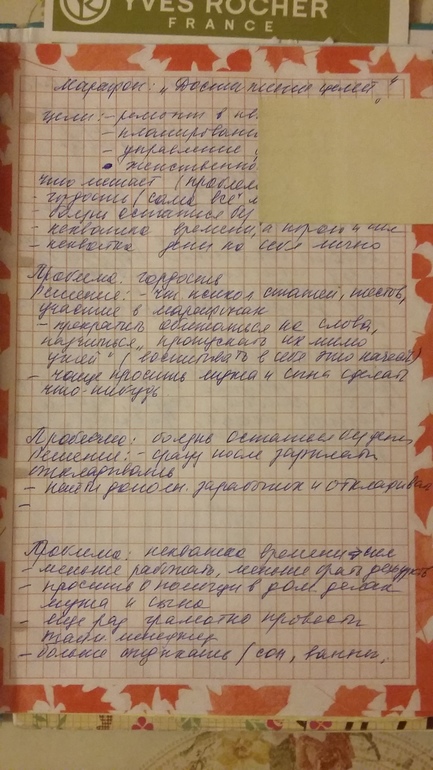 YVES ROCHER
FRANCE
Марафон: „Достижения целей"
цели: - ремонт в кв
- планирован
- управление
• женственно
что мешает (проблем
- гордость (сама всё
- боязнь остаться без
- нехватка времени, а порой и сил
- нехватка денег на себя лично
Проблема: гордость
Решение: - чт. психол. статей, тестов,
участие в марафонах
- прекратить обижаться на слова,
научиться „пропускать их мимо
ушей" (воспитывать в себе это качест)
- чаще просить мужа и сына сделать
что-нибудь
Проблема: боязнь остаться без денег
Решение: - сразу после зарплаты
откладывать
- найти дополн. заработок и откладыват
-
Проблема: нехватка времени и сил
- меньше работать, меньше брать дежурств
- просить о помощи в дом. делах
мужа и сына
- еще раз грамотно провести
тайм менеджер
- больше отдыхать (сон, ванны,